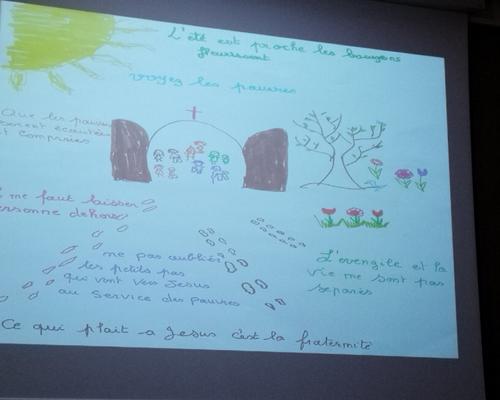 L'été est proche les bourgeons
fleurissent
voyez les pauvres
Que les pauvres
soient écoutés
et comprises
me faut laisser
personne dehors
ne pas oublier
les petits pas
qui vont vers Jesus
au service des pauvres
L'évengile et la
vie ne sont pas
séparés
Ce qui plait a Jesus c'est la fraternité